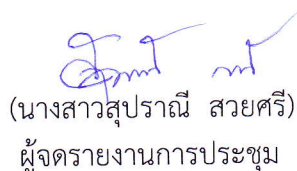 (นางสาวสุปราณี สวยศรี)
ผู้จดรายงานการประชุม